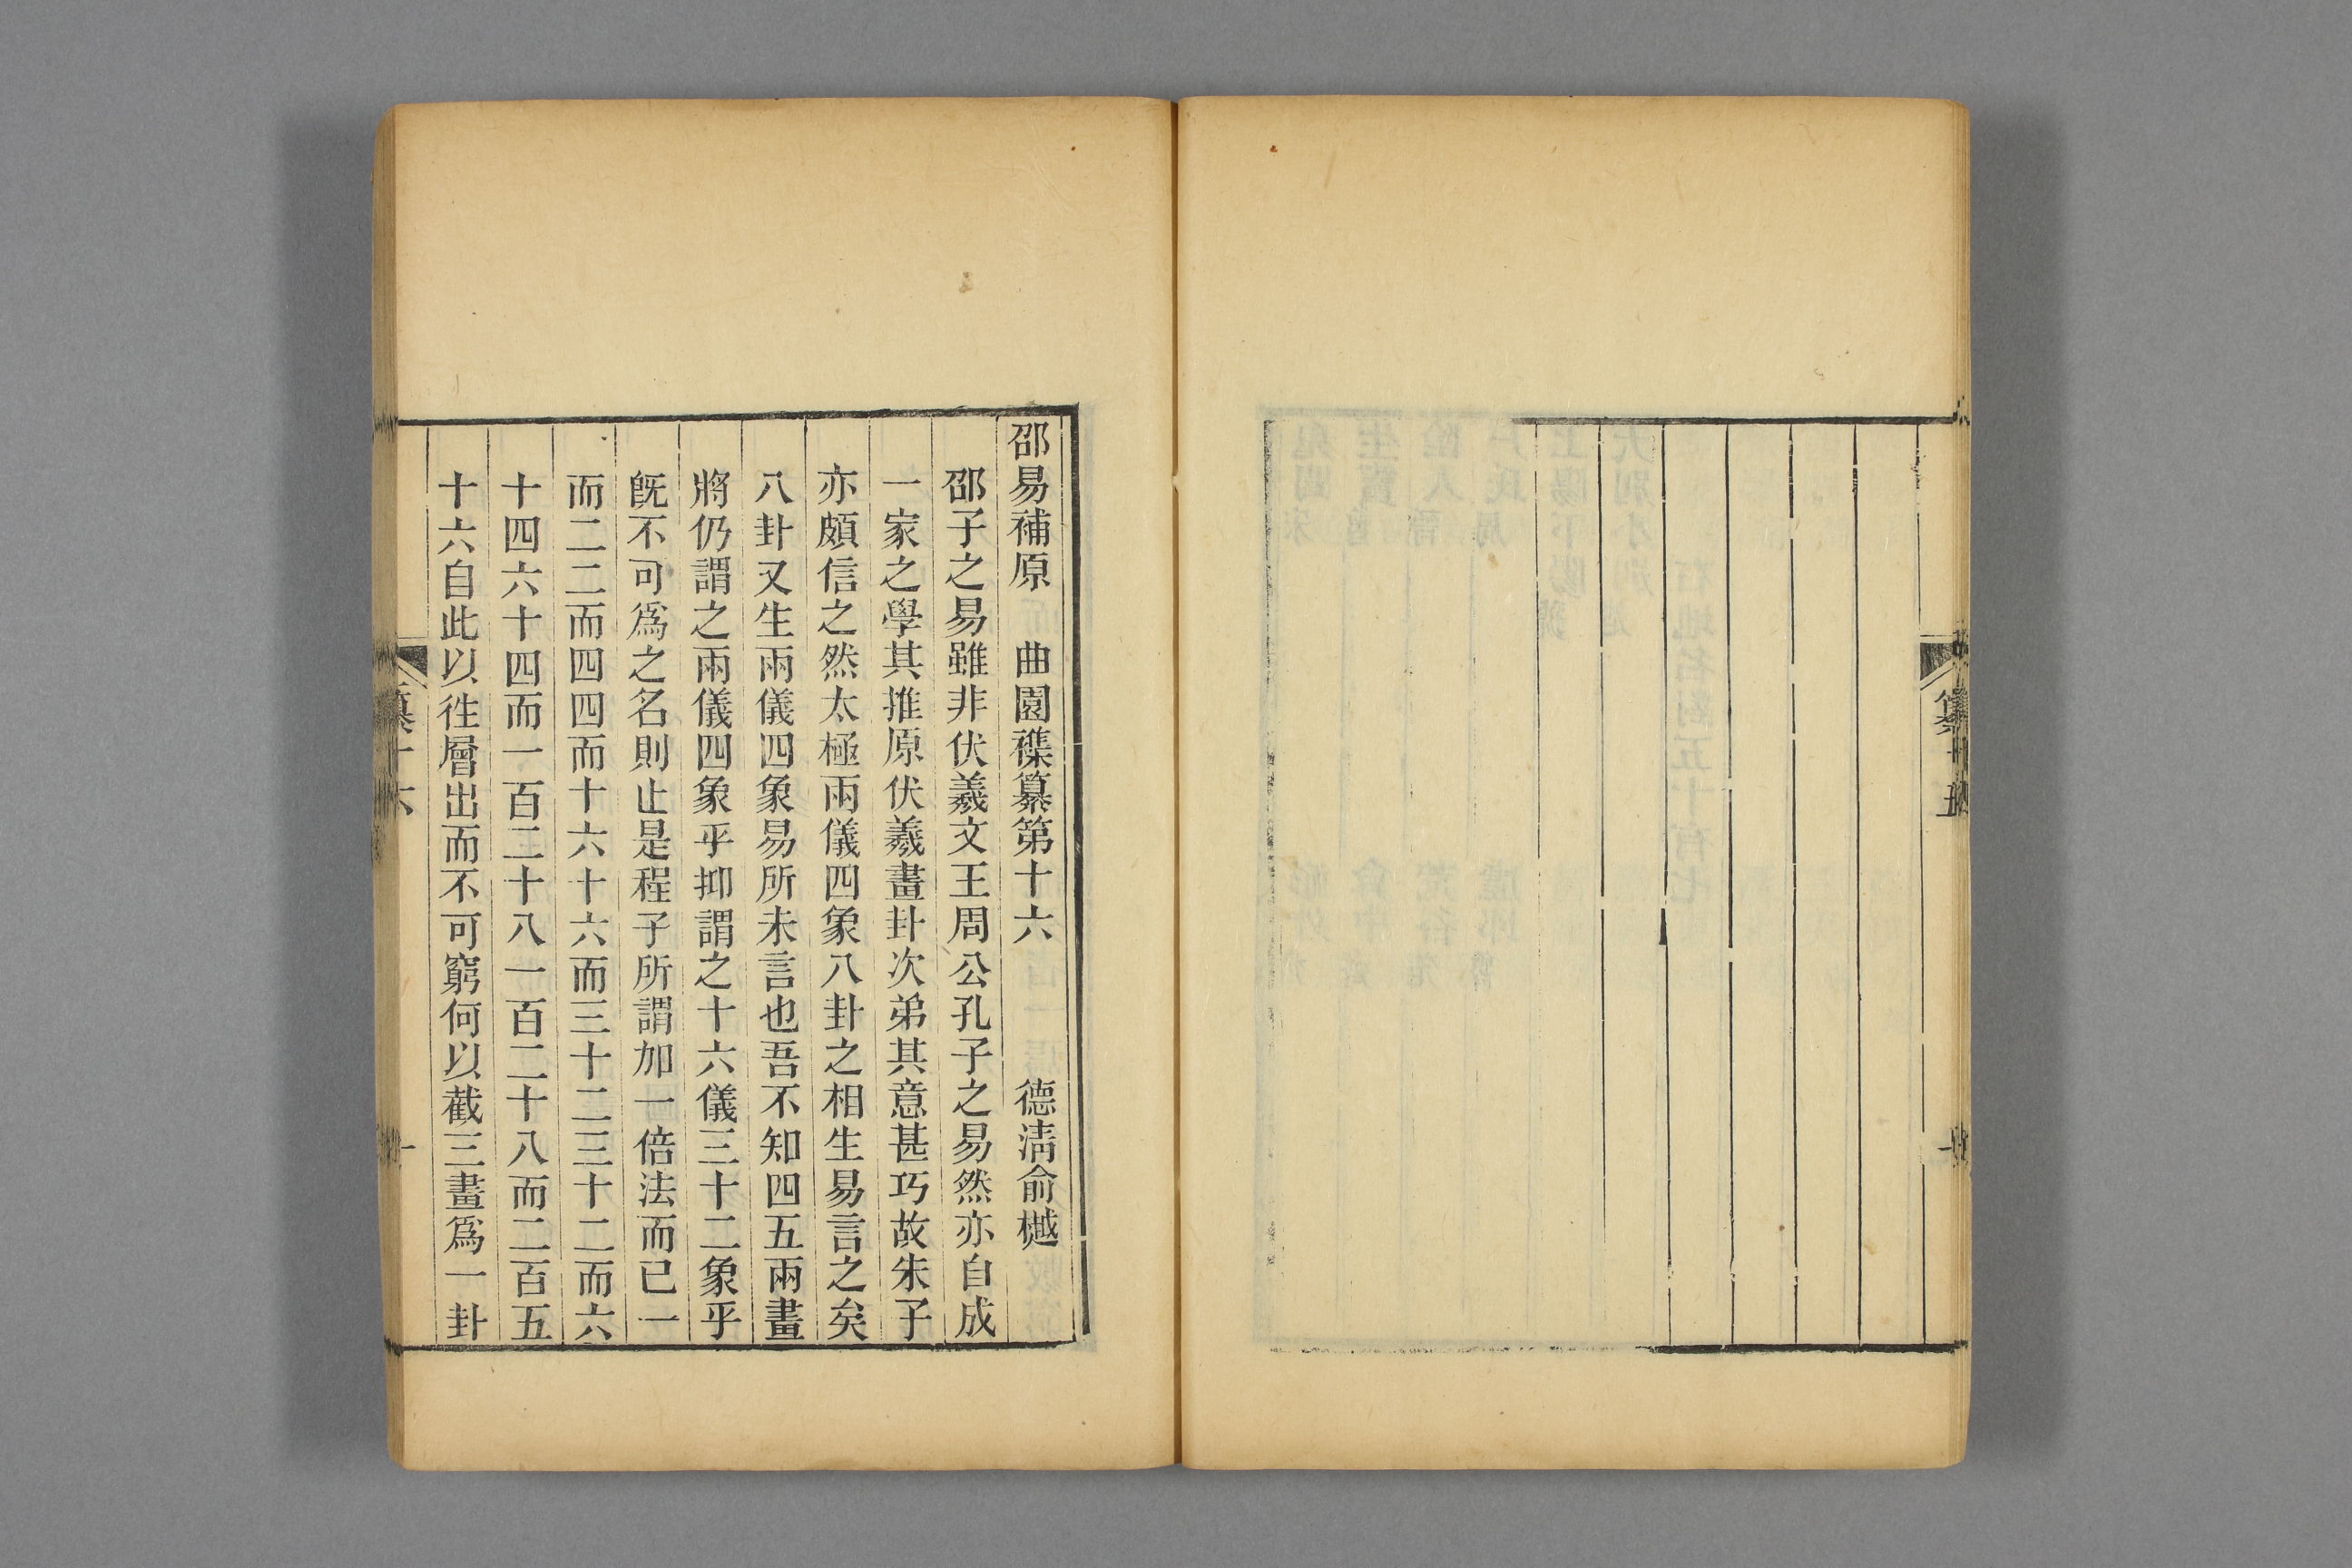 邵易補原　曲園襍纂第十六　　　德淸俞樾
邵子之易雖非伏羲文王周公孔子之易然亦自成
一家之學其推原伏羲畫卦次弟其意甚巧故朱子
亦頗信之然太極兩儀四象八卦之相生易言之矣
八卦又生兩儀四象易所未言也吾不知四五兩畫
將仍謂之兩儀四象乎抑謂之十六儀三十二象乎
旣不可爲之名則止是程子所謂加一倍法而已一
而二二而四四而十六十六而三十二三十二而六
十四六十四而一百二十八一百二十八而二百五
十六自此以往層出而不可窮何以截三畫爲一卦
纂十六
一